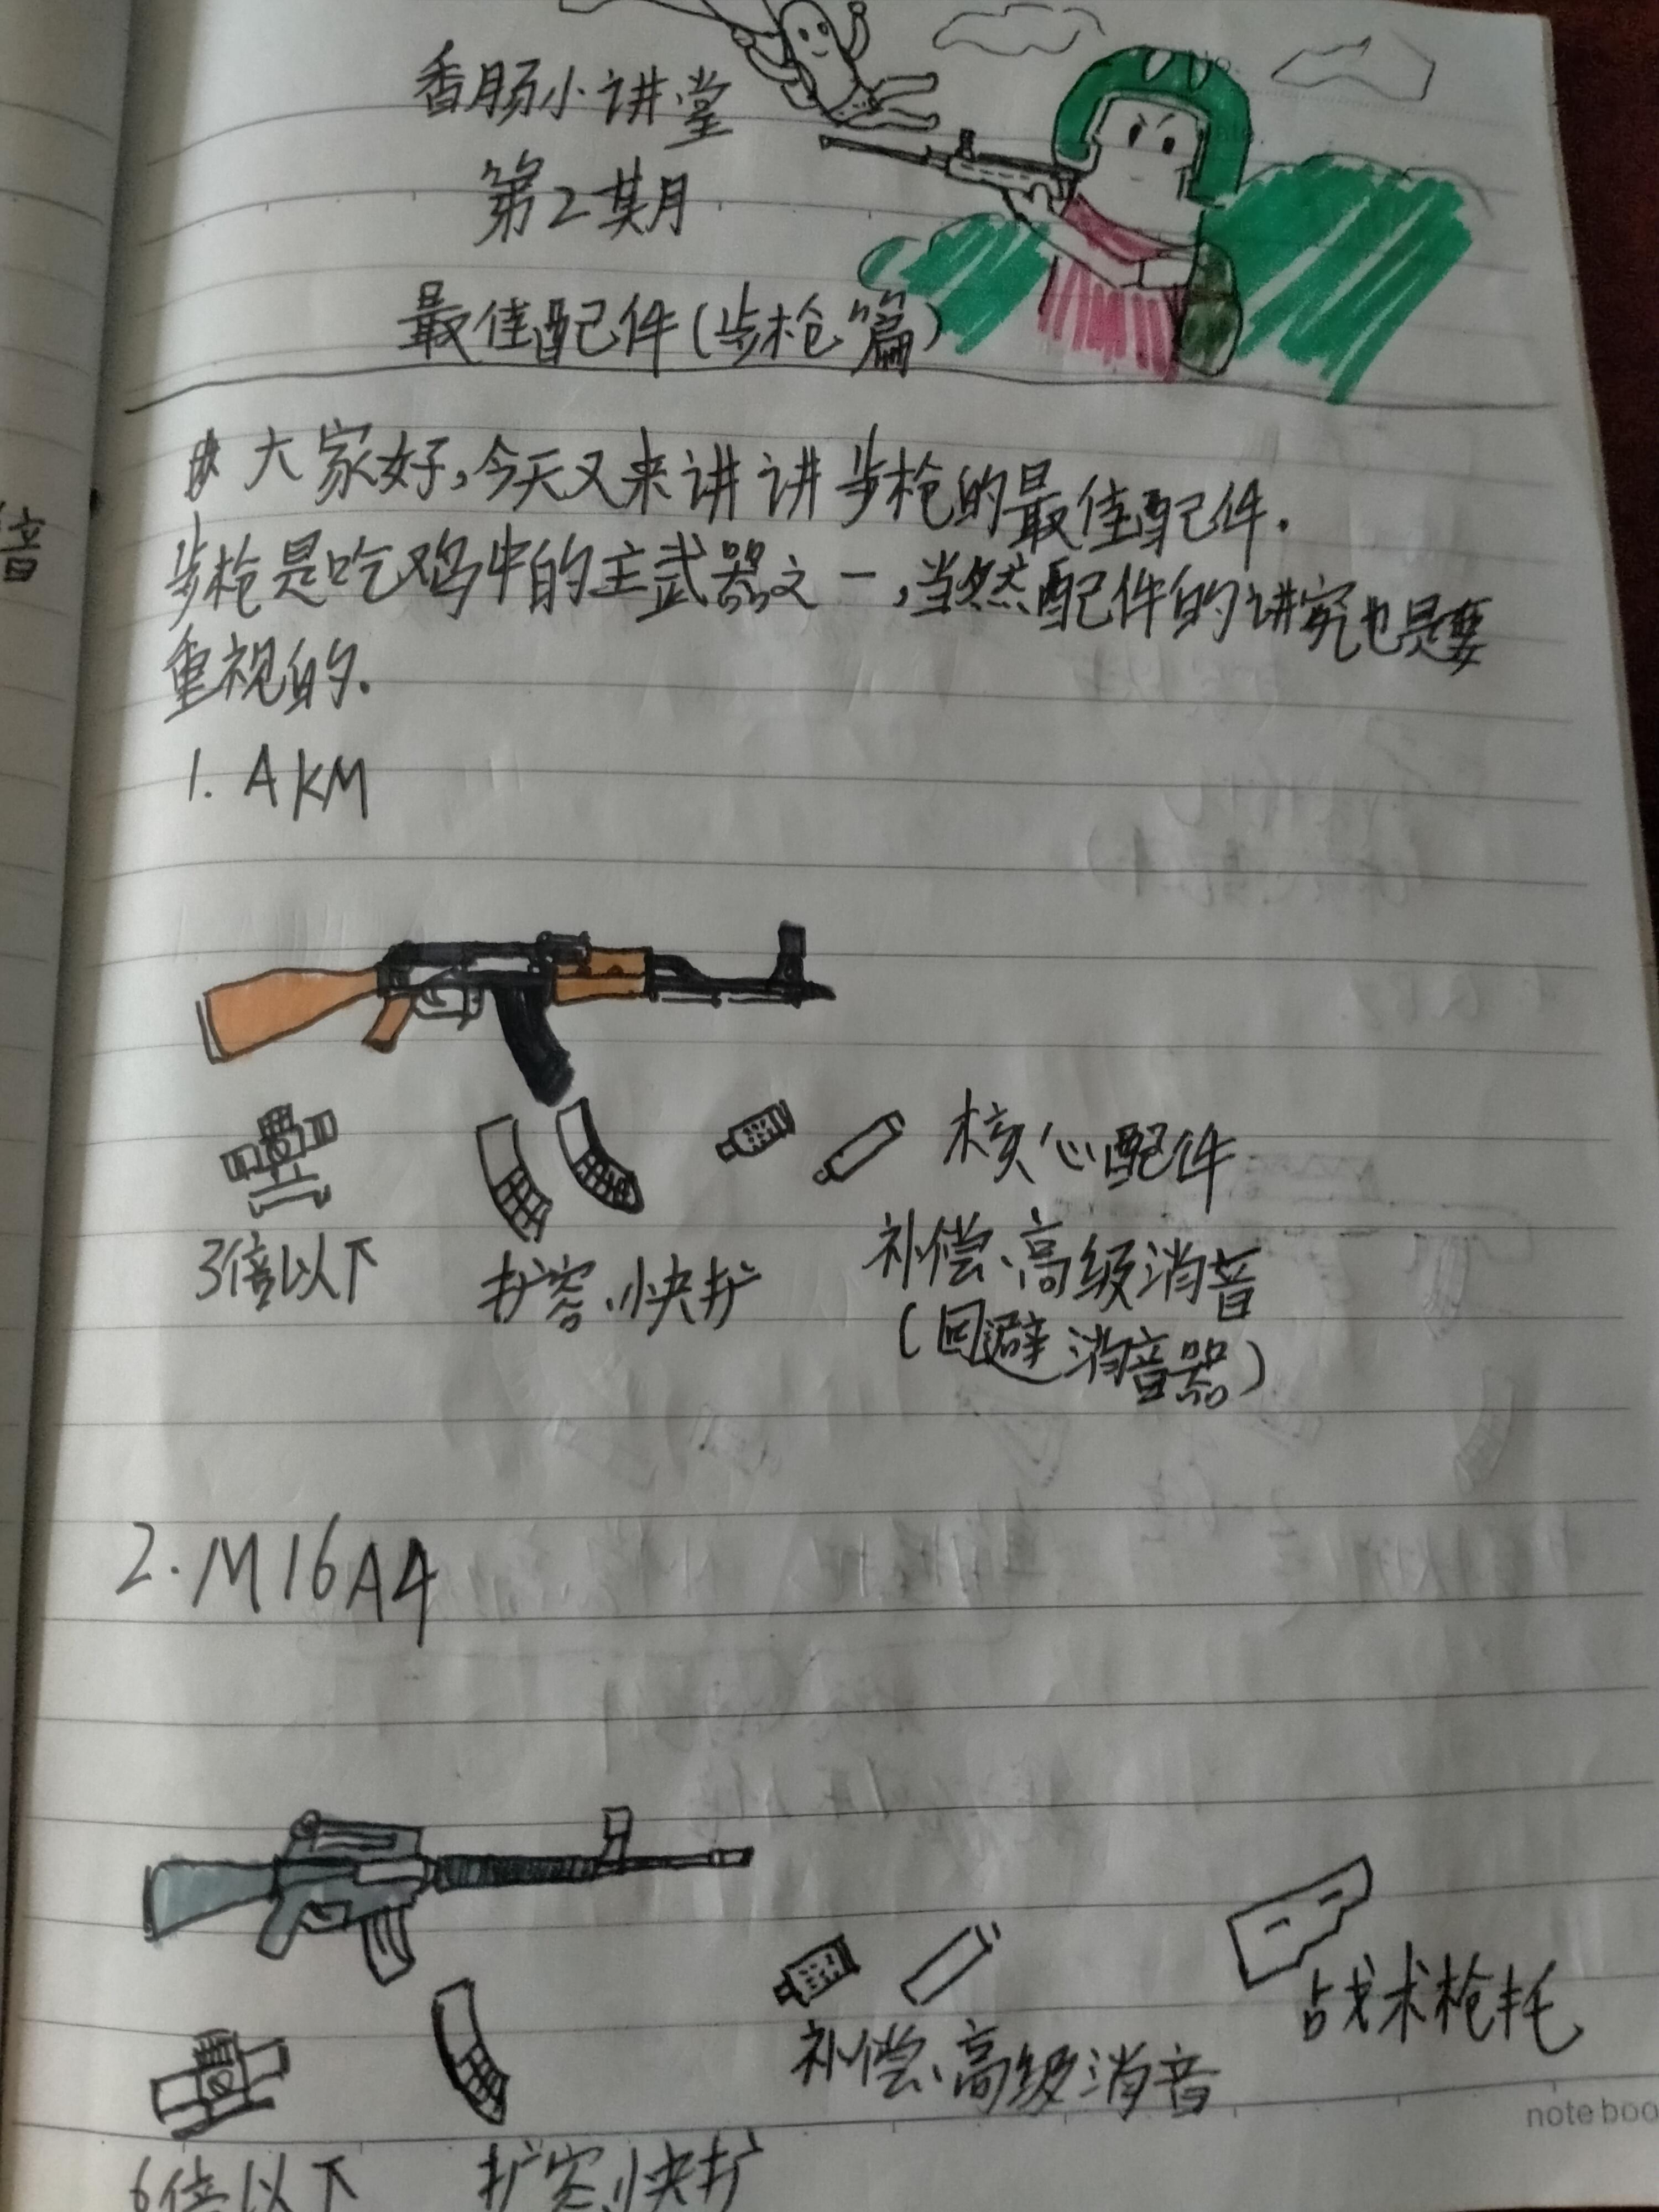 香肠小讲堂
第2期
最佳配件(步枪篇)
大家好,今天又来讲讲步枪的最佳配件.
步枪是吃鸡中的主武器之一,当然配件的讲究也是要
重视的.
1. AKM
核心配件
3倍以下 扩容、快扩 补偿、高级消音
(回避消音器)
2. M16A4
战术枪托
补偿、高级消音
6倍以下 扩容、快扩
音
noteboo